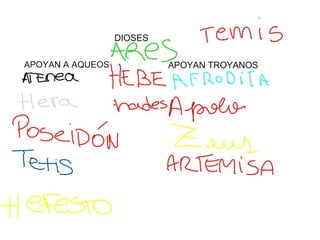 DIOSES
TEMIS
ARES
APOYAN A AQUEOS
APOYAN TROYANOS
ATENEA
HEBE
AFRODITA
Hera
hades
Apolo
POSEIDÓN
Zeus
TETIS
ARTEMISA
HEFESTO